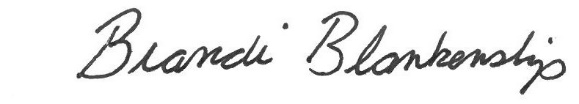 Brandi Blankenship